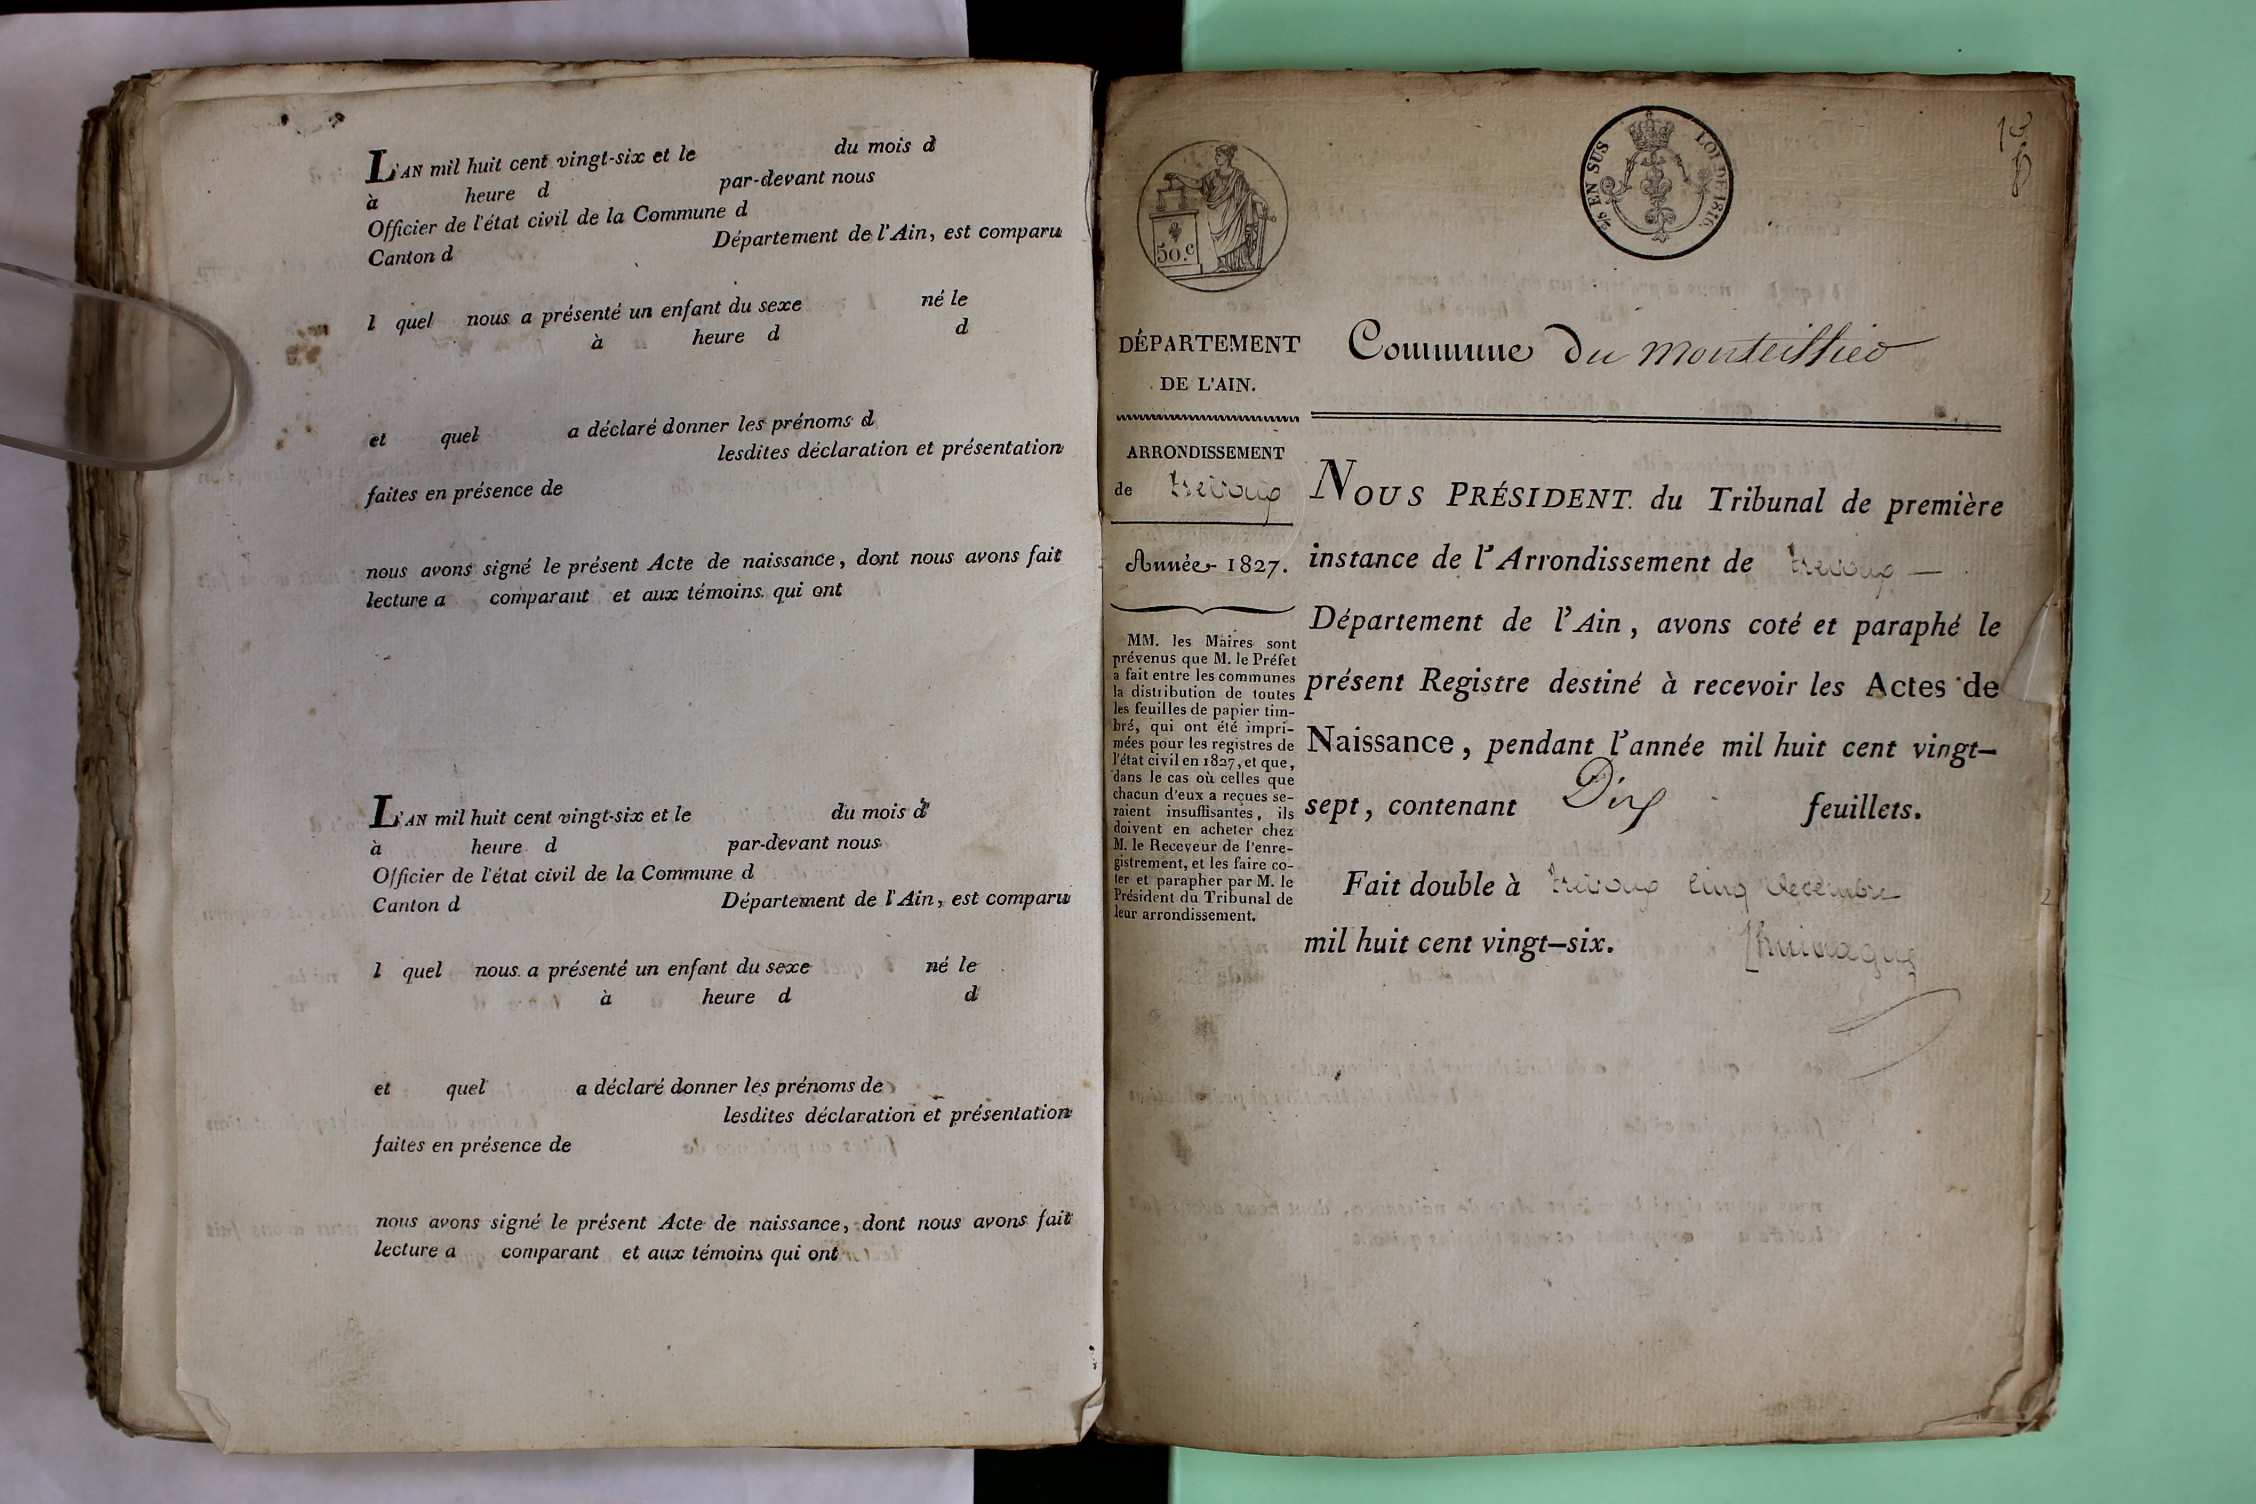 L'AN mil huit cent vingt-six et le du mois d
à heure d par-devant nous
Officier de l'état civil de la Commune d
Canton d Département de l'Ain, est comparu
l quel nous a présenté un enfant du sexe né le
à heure d d
et quel a déclaré donner les prénoms d
lesdites déclaration et présentation
faites en présence de
nous avons signé le présent Acte de naissance, dont nous avons fait
lecture a comparant et aux témoins qui ont
L'AN mil huit cent vingt-six et le du mois d
à heure d par-devant nous
Officier de l'état civil de la Commune d
Canton d Département de l'Ain, est comparu
l quel nous a présenté un enfant du sexe né le
à heure d d
et quel a déclaré donner les prénoms de
lesdites déclaration et présentation
faites en présence de
nous avons signé le présent Acte de naissance, dont nous avons fait
lecture a comparant et aux témoins qui ont
50.c
EN SUS LOI DE 1816.
DÉPARTEMENT
DE L'AIN.
ARRONDISSEMENT
de trevoux
Année 1827.
MM. les Maires sont
prévenus que M. le Préfet
a fait entre les communes
la distribution de toutes
les feuilles de papier tim-
bré, qui ont été impri-
mées pour les registres de
l'état civil en 1827, et que,
dans le cas où celles que
chacun d'eux a reçues se-
raient insuffisantes, ils
doivent en acheter chez
M. le Receveur de l'enre-
gistrement, et les faire co-
ter et parapher par M. le
Président du Tribunal de
leur arrondissement.
Commune du montellier
NOUS PRÉSIDENT du Tribunal de première
instance de l'Arrondissement de trevoux —
Département de l'Ain, avons coté et paraphé le
présent Registre destiné à recevoir les Actes de
Naissance, pendant l'année mil huit cent vingt-
sept, contenant Dix feuillets.
Fait double à trevoux cinq decembre
mil huit cent vingt-six.